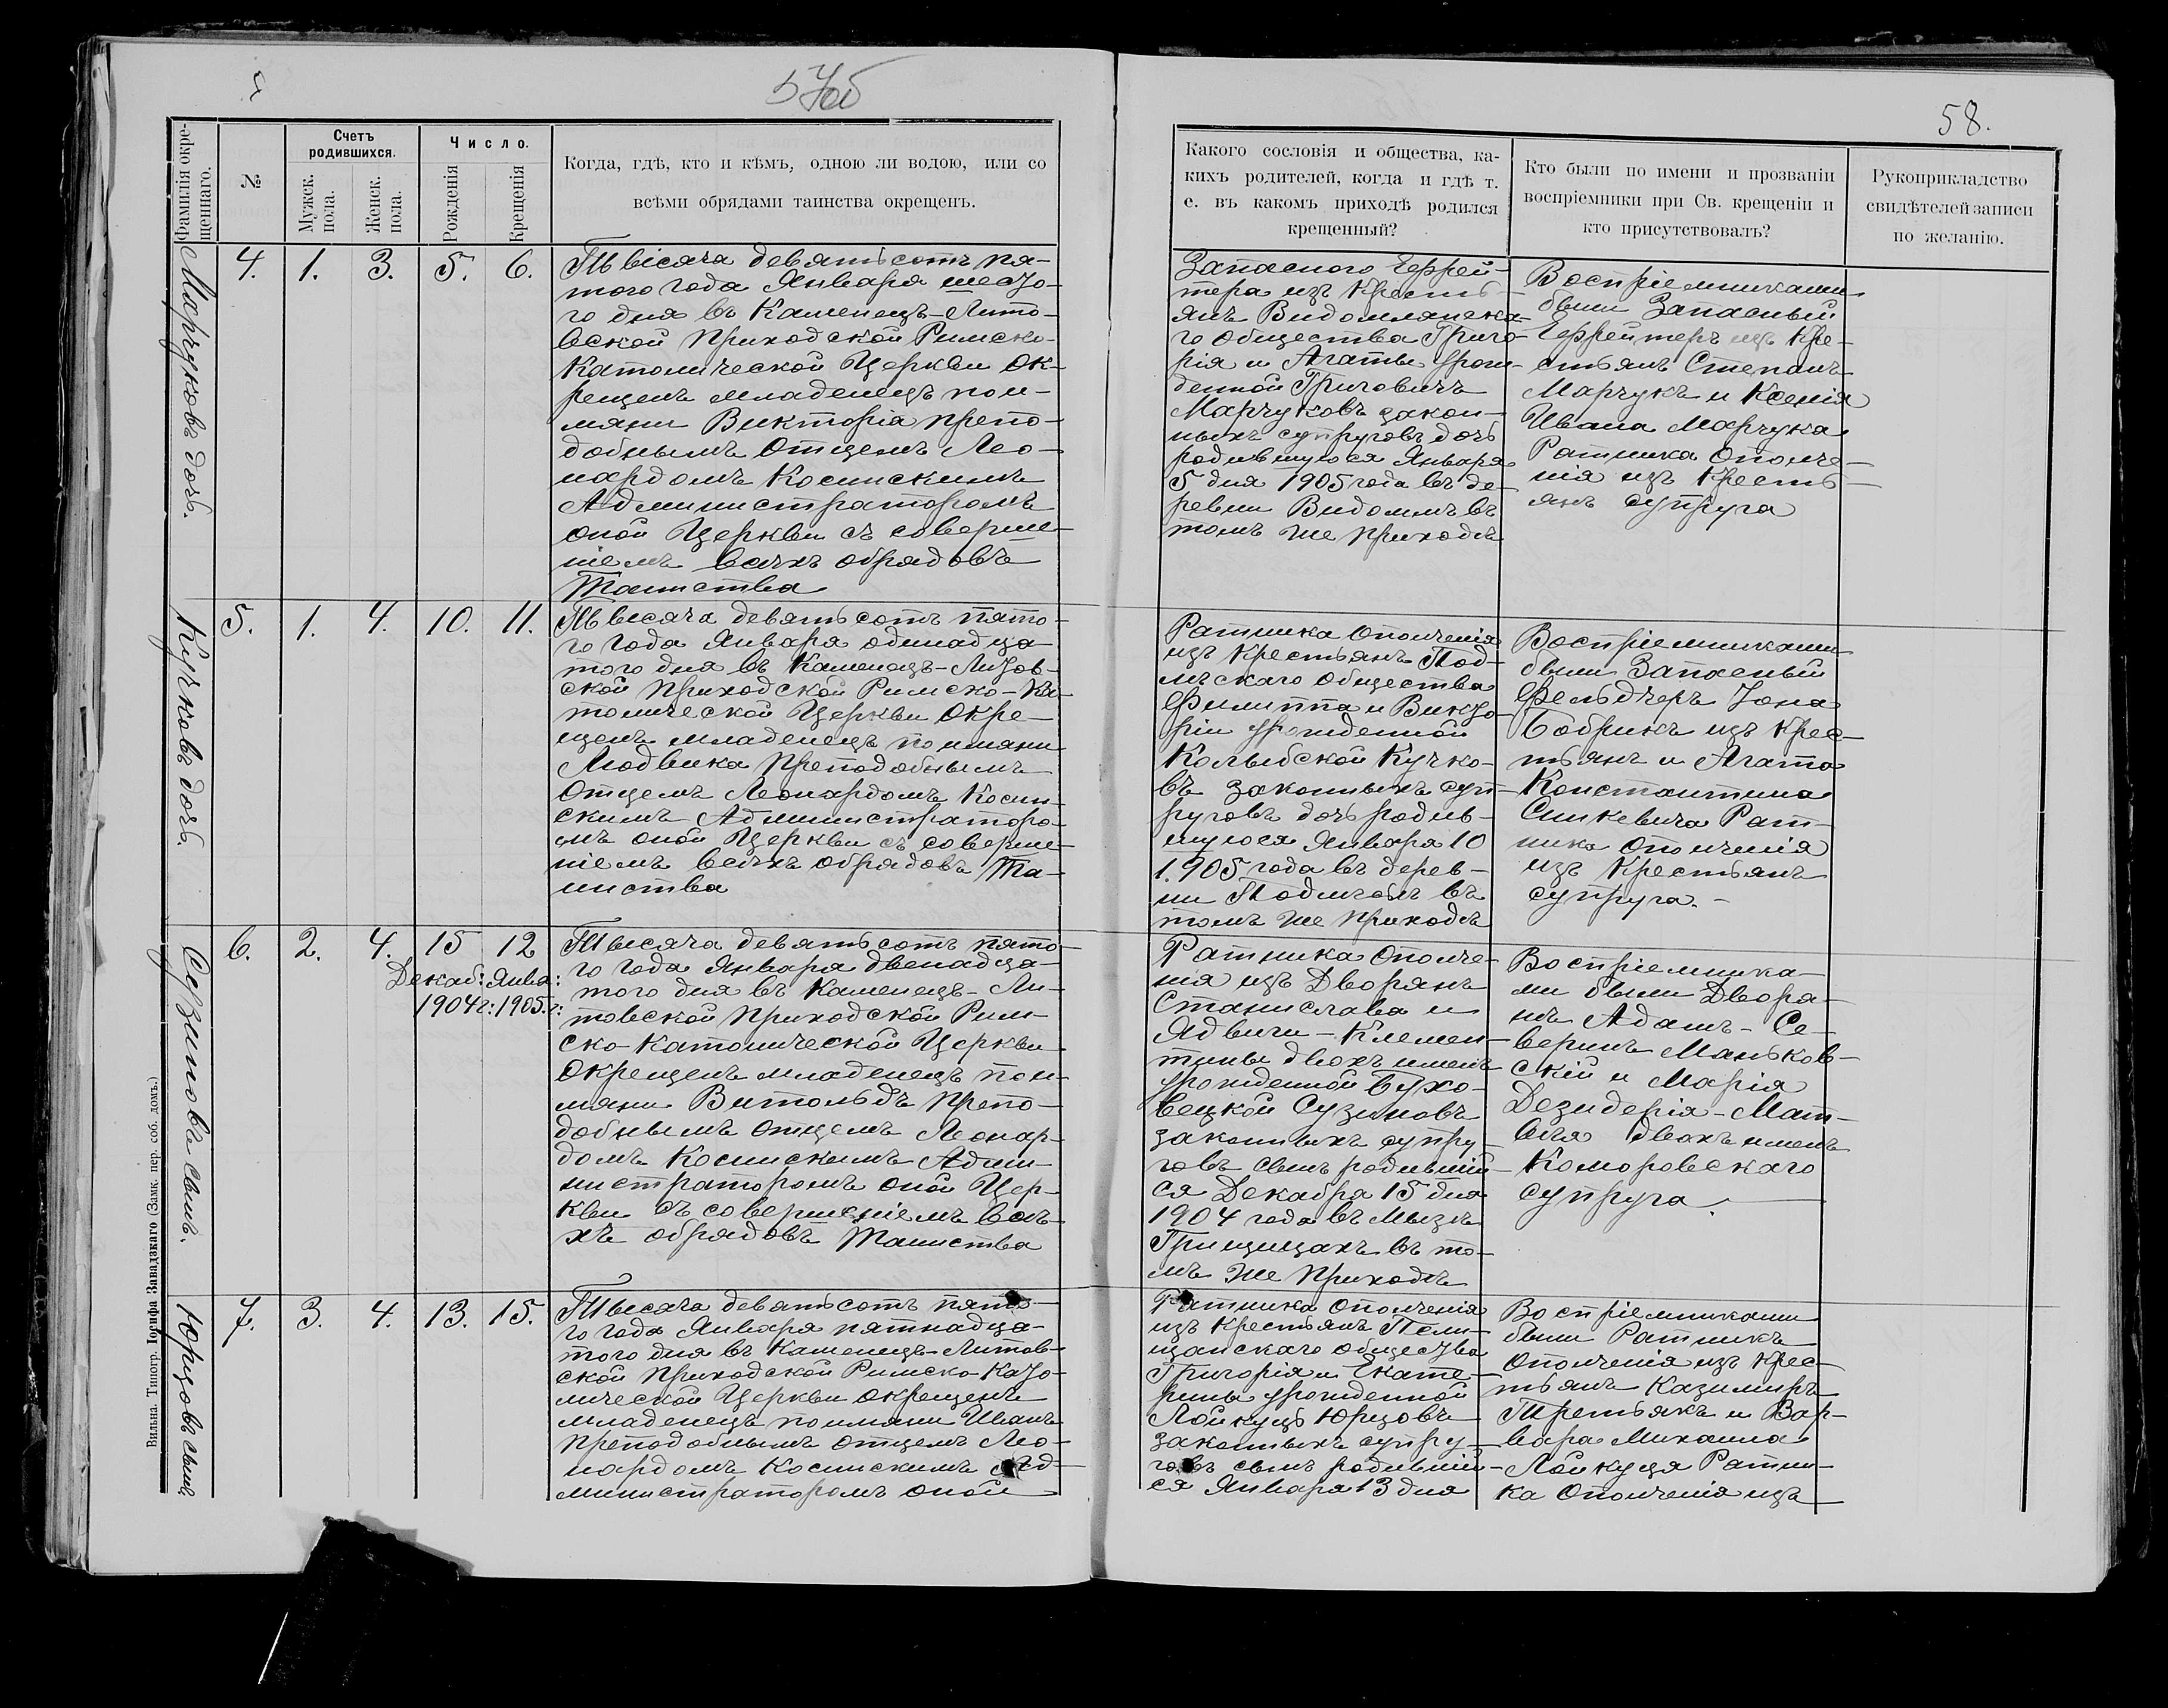 57об
58.
Фамилія окре-
щеннаго.
№
Счетъ
родившихся.
Мужск.
пола.
Женск.
пола.
Число.
Рожденія
Крещенія
Когда, гдѣ, кто и кѣмъ, одною ли водою, или со
всѣми обрядами таинства окрещенъ.
Какого сословія и общества, ка-
кихъ родителей, когда и гдѣ т.
е. въ какомъ приходѣ родился
крещенный?
Кто были по имени и прозваніи
воспріемники при Св. крещеніи и
кто присутствовалъ?
Рукоприкладство
свидѣтелей записи
по желанію.
Марчуковъ дочь.
4. 1. 3. 5. 6.
Тысяча девятьсотъ пя-
того года Января шесто-
го дня въ Каменецъ-Лито-
вской приходской Римско-
Католической Церкви ок-
рещенъ младенецъ пои-
мяни Викторія препо-
добнымъ Отцемъ Лео-
нардомъ Косинскимъ
Администраторомъ
оной Церкви съ соверше-
ніемъ всѣхъ обрядовъ
Таинства
Запасного Ефрей-
тера изъ Кресть-
янъ Видомлянска-
го общества Григо-
рія и Агаты урож-
денной Григовичъ
Марчуковъ закон-
ныхъ супруговъ дочь
родившуюся Января
5 дня 1905 года въ де-
ревни Видомлѣ въ
томъ же приходѣ
Воспріемниками
были Запасный
Ефрейтеръ изъ Кре-
стьянъ Степанъ
Марчукъ и Ксенія
Ивана Марчука
Ратника Ополче-
нія изъ Кресть-
янъ супруга
Кучковъ дочь.
5. 1. 4. 10. 11.
Тысяча девятьсотъ пято-
го года Января одинадца-
того дня въ Каменецъ-Литов-
ской приходской Римско-Ка-
толической Церкви окре-
щенъ младенецъ поимяни
Людвика преподобнымъ
Отцемъ Леонардомъ Косин-
скимъ Администраторо-
мъ оной Церкви съ соверше-
ніемъ всѣхъ обрядовъ Та-
инства
Ратника Ополченія
изъ Крестьянъ Под-
лѣскаго общества
Филиппа и Викто-
ріи урожденной
Колыбской Кучко-
въ законныхъ суп-
руговъ дочь родив-
шуюся Января 10
1905 года въ дерев-
ни въ
томъ же приходѣ
Воспріемниками
были Запасный
Фельдчеръ Іона
Бобрикъ изъ Крес-
тьянъ и Агата
Константина
Синкевича Рат-
ника Ополченія
изъ Крестьянъ
супруга.-
Сузиновъ сынъ.
6. 2. 4. 15 12
Декаб: Янва:
1904г: 1905.г:
Тысяча девятьсотъ пято-
го года Января двенадца-
того дня въ Каменецъ-Ли-
товской приходской Рим-
ско-Католической Церкви
Окрещенъ младенецъ пои-
мяни Витольдъ препо-
добнымъ Отцемъ Леонар-
домъ Косинскимъ Адми-
нистраторомъ оной Цер-
кви съ совершеніемъ всѣ-
хъ обрядовъ Таинства
Ратника Ополче-
нія изъ Дворянъ
Станислава и
Ядвиги-Клемен-
тины двохъ именъ
урожденной Бухо-
вецкой Сузиновъ
законныхъ супру-
говъ сынъ родившій-
ся Декабря 15 дня
1904 года въ Мызѣ
Грищицахъ въ то-
мъ же приходѣ
Воспріемника-
ми были Дворя-
нъ Адамъ-Се-
веринъ Маньков-
скій и Марія
Дезидерія-Мат-
вѣя двохъ именъ
Коморовскаго
супруга.
Юрцовъ сынъ
7. 3. 4. 13. 15.
Тысяча девятьсотъ пято-
го года Января пятнадца-
того дня въ Каменецъ-Литов-
ской приходской Римско-Като-
лической Церкви окрещенъ
младенецъ поимяни Иванъ
преподобнымъ отцемъ Лео-
нардомъ Косинскимъ Ад-
министраторомъ оной
Ратника Ополченія
изъ Крестьянъ Пели-
щанскаго общества
Григорія и Екате-
рины урожденной
Лойкуць Юрцовъ
законныхъ супру-
говъ сынъ родившій-
ся Января 13 дня
Воспріемниками
были Ратникъ
Ополченія изъ Крес-
тьянъ Казимиръ
Третьякъ и Вар-
вара Михаила
Лойкуця Ратни-
ка Ополченія изъ
Вильна. Типогр. Іосифа Завадзкаго (Замк. пер. соб. домъ.)